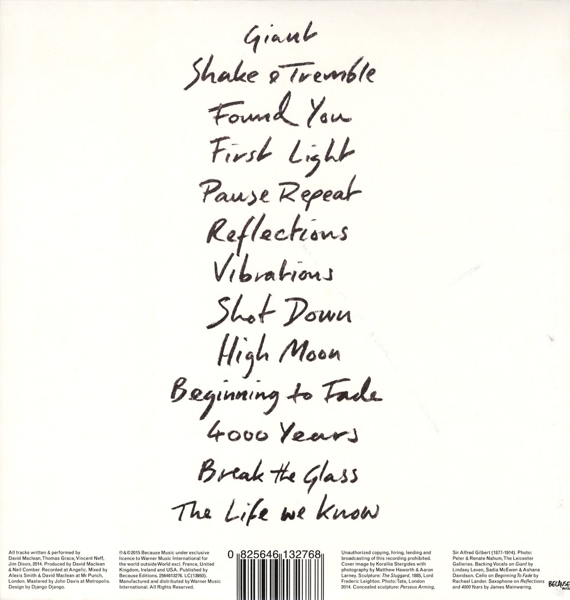 Giant
Shake & Tremble
Found You
First Light
Pause Repeat
Reflections
Vibrations
Shot Down
High Moon
Beginning to Fade
4000 Years
Break the Glass
The Life we know
All tracks written & performed by
David Maclean, Thomas Grace, Vincent Neff,
Jim Dixon, 2014. Produced by David Maclean
& Neil Comber. Recorded at Angelic. Mixed by
Alexis Smith & David Maclean at Mr Punch,
London. Mastered by John Davis at Metropolis.
Design by Django Django.
℗&©2015 Because Music under exclusive
licence to Warner Music International for
the world outside/World excl. France, United
Kingdom, Ireland and USA. Published by
Because Editions, 2564613276. LC(13860).
Manufactured and distributed by Warner Music
International. All Rights Reserved.
0 825646 132768
Unauthorized copying, hiring, lending and
broadcasting of this recording prohibited.
Cover image by Koralia Stergides with
photography by Matthew Haworth & Aaron
Larney. Sculpture: The Sluggard, 1885, Lord
Frederic Leighton. Photo: Tate, London
2014. Concealed sculpture: Perseus Arming,
Sir Alfred Gilbert (1877-1914). Photo:
Peter & Renate Nahum, The Leicester
Galleries. Backing Vocals on Giant by
Lindsay Leven, Sadia McEwen & Ashana
Davidson. Cello on Beginning To Fade by
Rachael Lander. Saxophone on Reflections
and 4000 Years by James Mainwaring.
BECAUSE